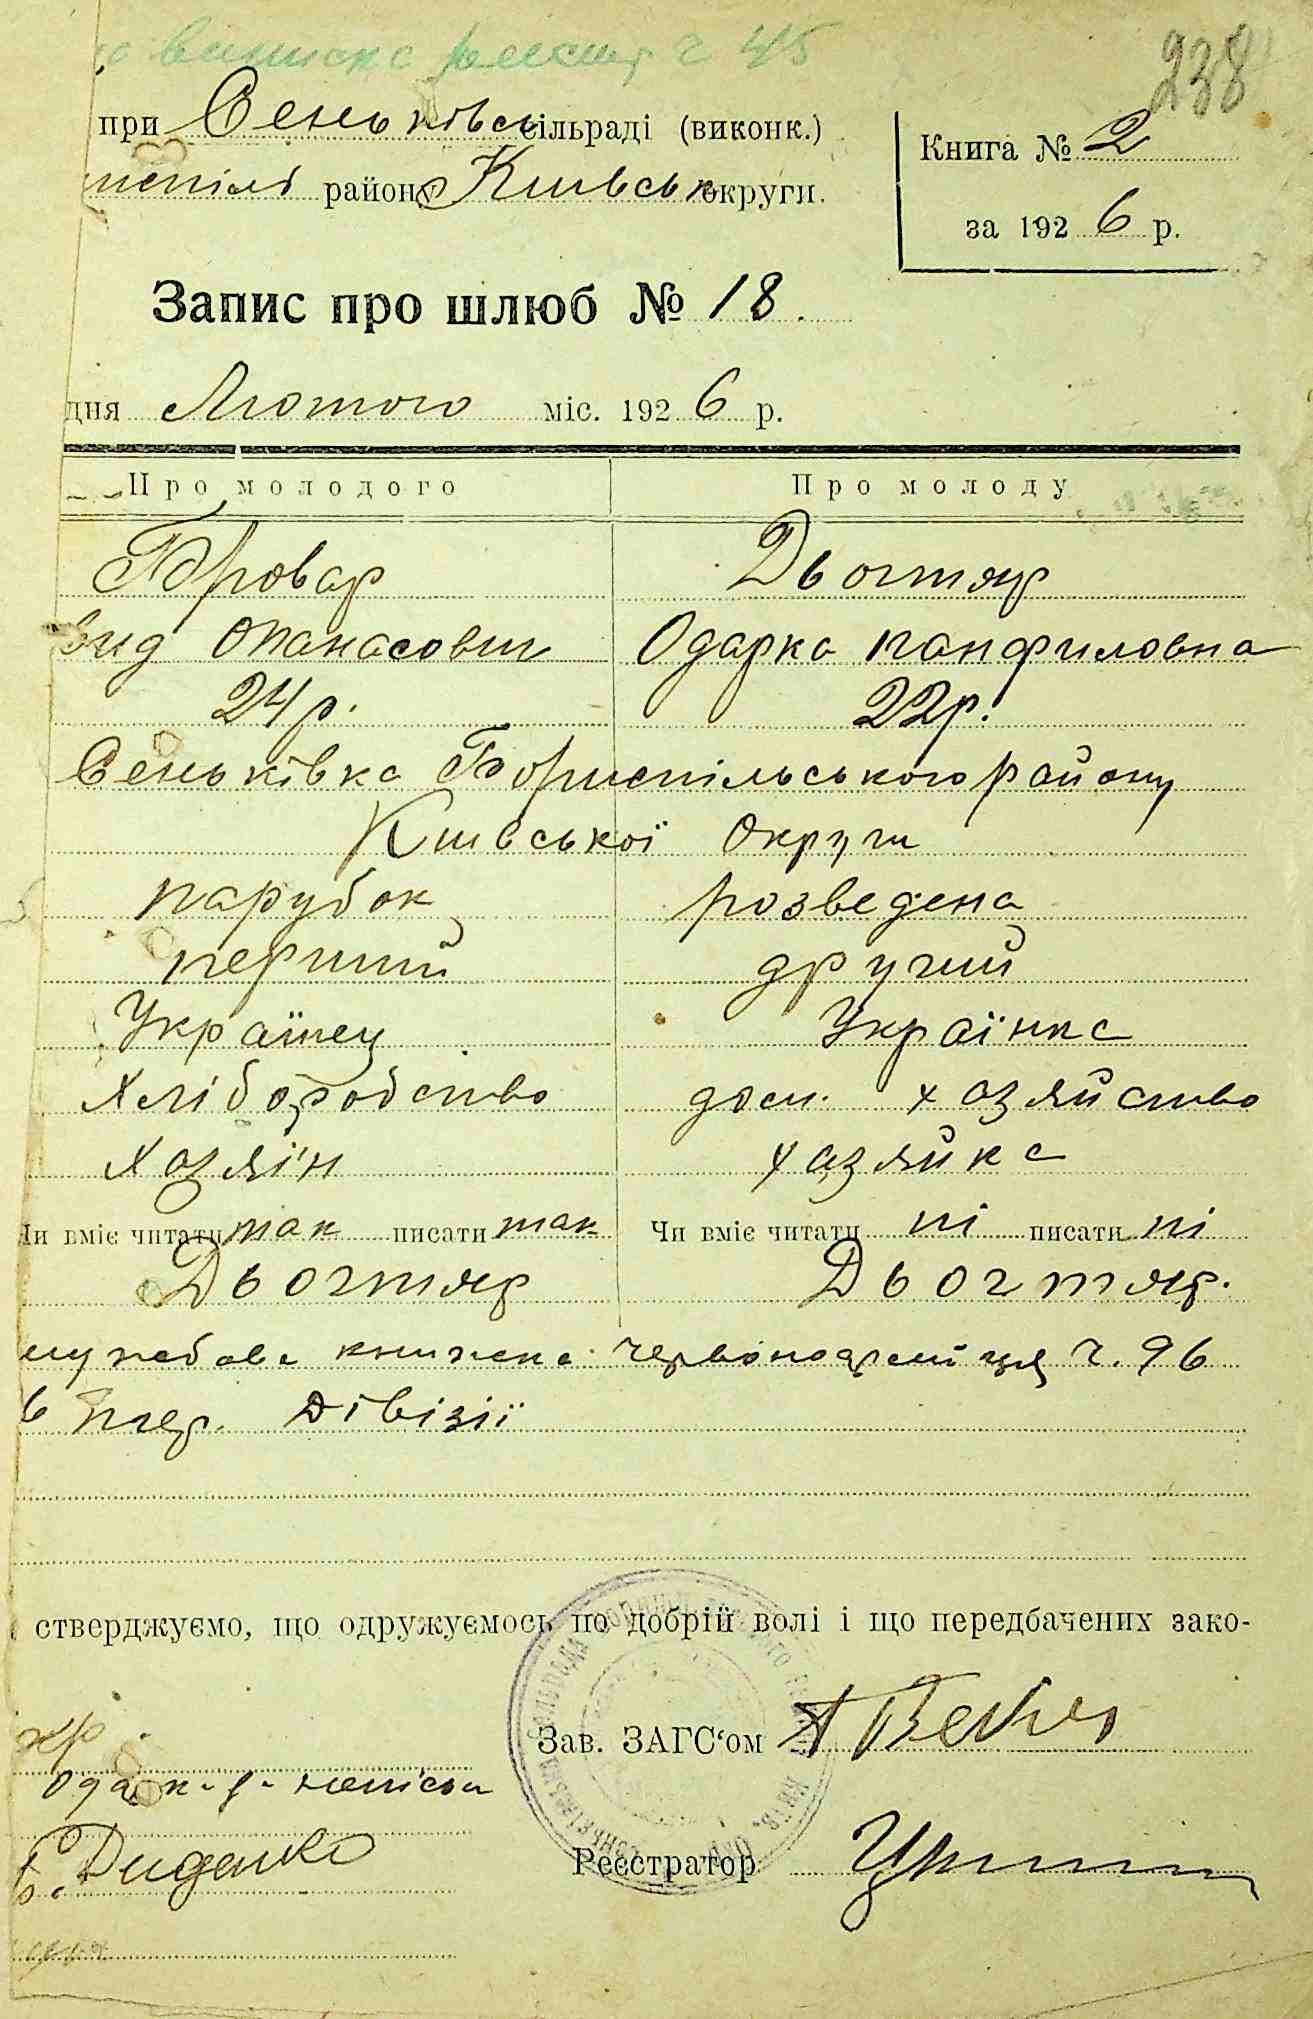 виписка ч 45
238
при Сеньківськ сільраді (виконк.)
Книга № 2
испіль району Київськ округи.
за 1926 р.
Запис про шлюб № 18.
дня Лютого міс. 1926 р.
Про молодого Про молоду
Бровар Дьогтяр
вид Опанасович Одарка Панфиловна
24 р. 22 р.
Сеньківка Бориспільського району
Київської Округи
парубок розведена
перший другий
Українец Українка
Хліборобство дом. хозяйство
Хозяїн хазяйка
Чи вміє читати так писати так Чи вміє читати ні писати ні
Дьогтяр Дьогтяр.
ужебова книжка червоноармійця ч. 96
тер. Дівізії
стверджуємо, що одружуємось по добрій волі і що передбачених зако-
Зав. ЗАГС'ом
Реєстратор
Б. Диденко